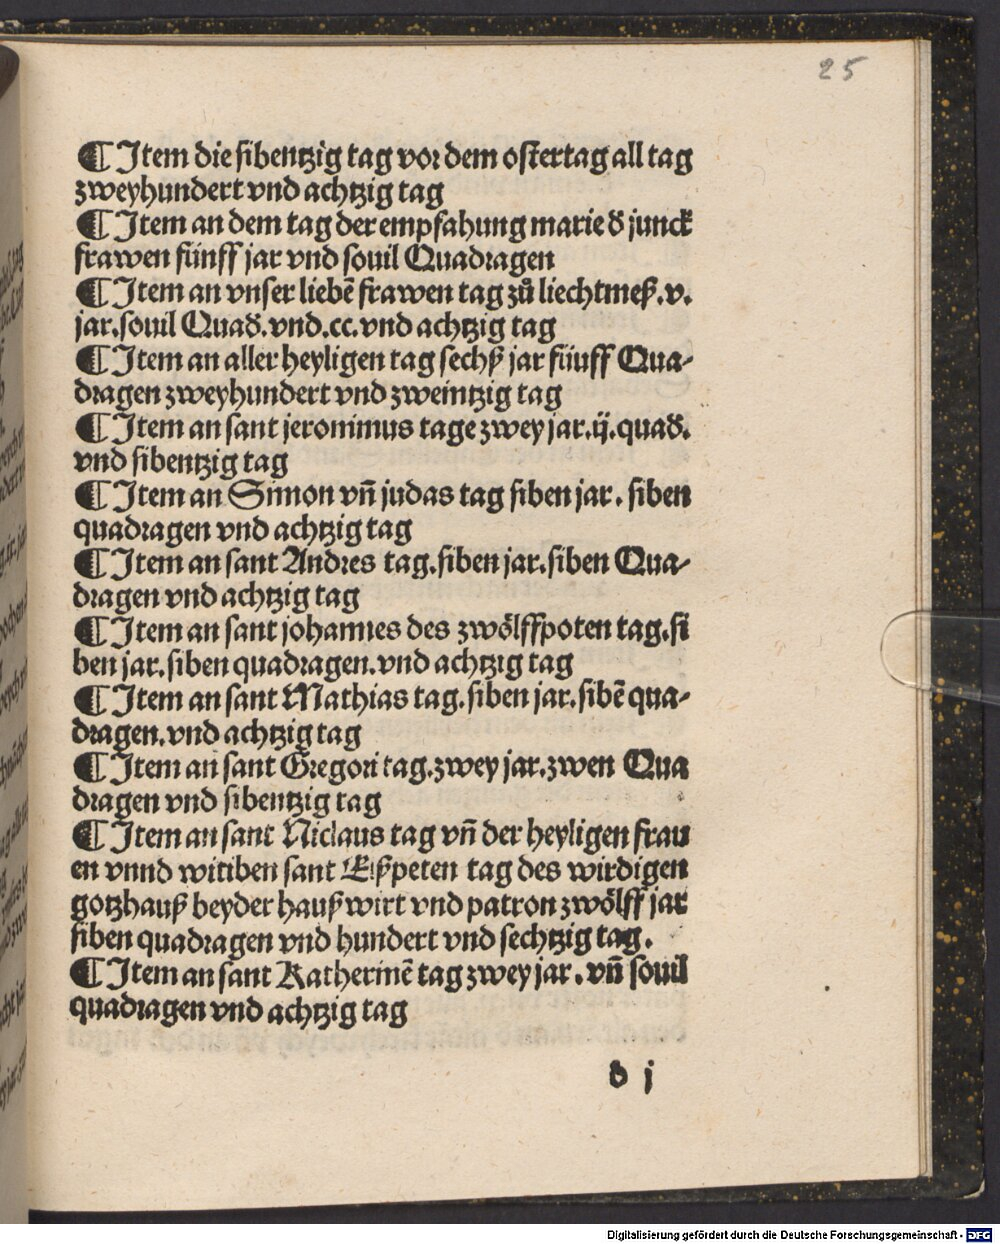 25
¶ Item die sibentzig tag vor dem ostertag all tag
zweyhundert vnd achtzig tag
¶ Item an dem tag der empfahung marie d̕ junck
frawen fünff jar vnd souil Quadragen
¶ Item an vnser liebē frawen tag zů liechtmeß.v.
jar.souil Quad̕.vnd.cc.vnd achtzig tag
¶ Item an aller heyligen tag sechß jar füuff Qua-
dragen zweyhundert vnd zweintzig tag
¶ Item an sant jeronimus tage zwey jar.ij.quad̕.
vnd sibentzig tag
¶ Item an Simon vñ judas tag siben jar. siben
quadragen vnd achtzig tag
¶ Item an sant Andres tag.siben jar.siben Qua-
dragen vnd achtzig tag
¶ Item an sant johannes des zwölffpoten tag.si
ben jar.siben quadragen.vnd achtzig tag
¶ Item an sant Mathias tag.siben jar.sibē qua-
dragen.vnd achtzig tag
¶ Item an sant Gregori tag.zwey jar.zwen Qua
dragen vnd sibentzig tag
¶ Item an sant Niclaus tag vñ der heyligen frau
en vnnd witiben sant Elßpeten tag des wirdigen
gotzhauß beyder haußwirt vnd patron zwölff jar
siben quadragen vnd hundert vnd sechtzig tag.
¶ Item an sant Katherinē tag zwey jar. vñ souil
quadragen vnd achtzig tag
d j
Digitalisierung gefördert durch die Deutsche Forschungsgemeinschaft - DFG